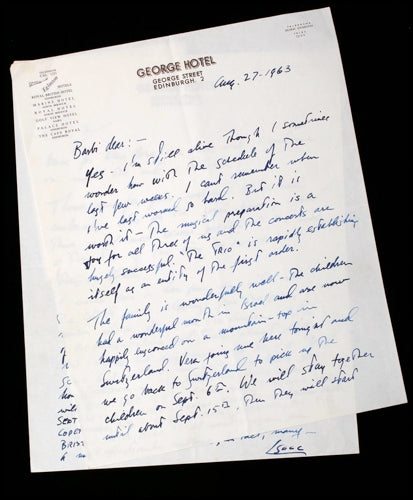 GEORGE HOTEL
GEORGE STREET
EDINBURGH, 2
Aug. 27-1963
ROYAL BRITISH HOTEL
MARINE HOTEL
ROYAL HOTEL
GOLF VIEW HOTEL
PALACE HOTEL
THE CARD ROYAL
Barbi dear: —
Yes - I'm still alive though I sometimes
wonder how with the schedule of the
last few weeks. I can't remember when
I've last worked so hard. But it is
worth it - The musical preparation is a
joy for all three of us and the concerts are
hugely successful. The "TRIO" is rapidly establishing
itself as an entity of the first order.
The family is wonderfully well - The children
had a wonderful month in Israel and are now
happily ensconced on a mountain-top in
Switzerland. Vera joins me here tonight and
we go back to Switzerland to pick up the
children on Sept. 6th. We will stay together
until about Sept. 15th. Then they will start
many
Isaac